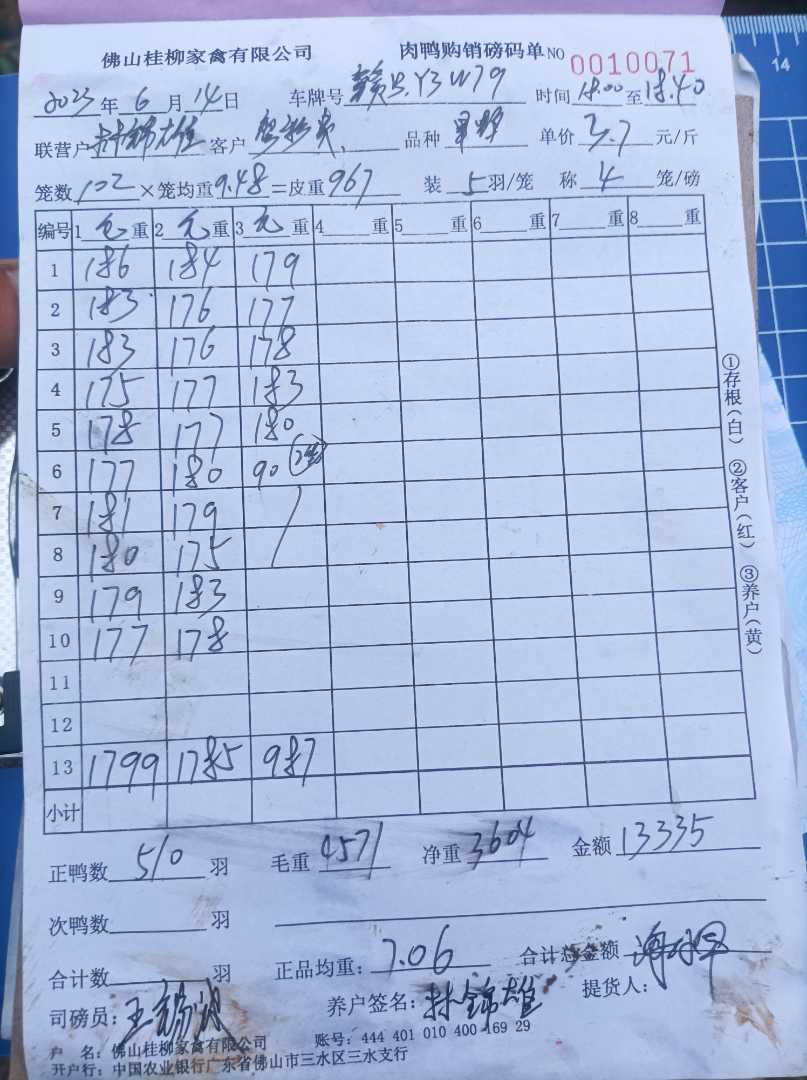 佛山桂柳家禽有限公司 肉鸭购销磅码单 NO 0010071
2023年6月14日 车牌号 赣B.Y3W79 时间 18.00 至 18.40
联营户 林锦雄 客户 品种 单价 3.7 元/斤
笼数 102 ×笼均重 9.48 =皮重 967 装 5 羽/笼 称 4 笼/磅
编号 1 毛 重 2 毛 重 3 毛 重 4 重 5 重 6 重 7 重 8 重
1 186 184 179
2 183 176 177
3 183 176 178
4 175 177 183
5 178 177 180
6 177 180 90 (2笼)
7 181 179
8 180 175
9 179 183
10 177 178
11
12
13 1799 1785 987
小计
正鸭数 510 羽 毛重 4571 净重 3604 金额 13335
次鸭数 羽
合计数 羽 正品均重: 7.06 合计总金额
司磅员: 养户签名: 林锦雄 提货人:
户 名: 佛山桂柳家禽有限公司 账号: 444 401 010 400 169 29
开户行: 中国农业银行广东省佛山市三水区三水支行
①存根(白) ②客户(红) ③养户(黄)
14